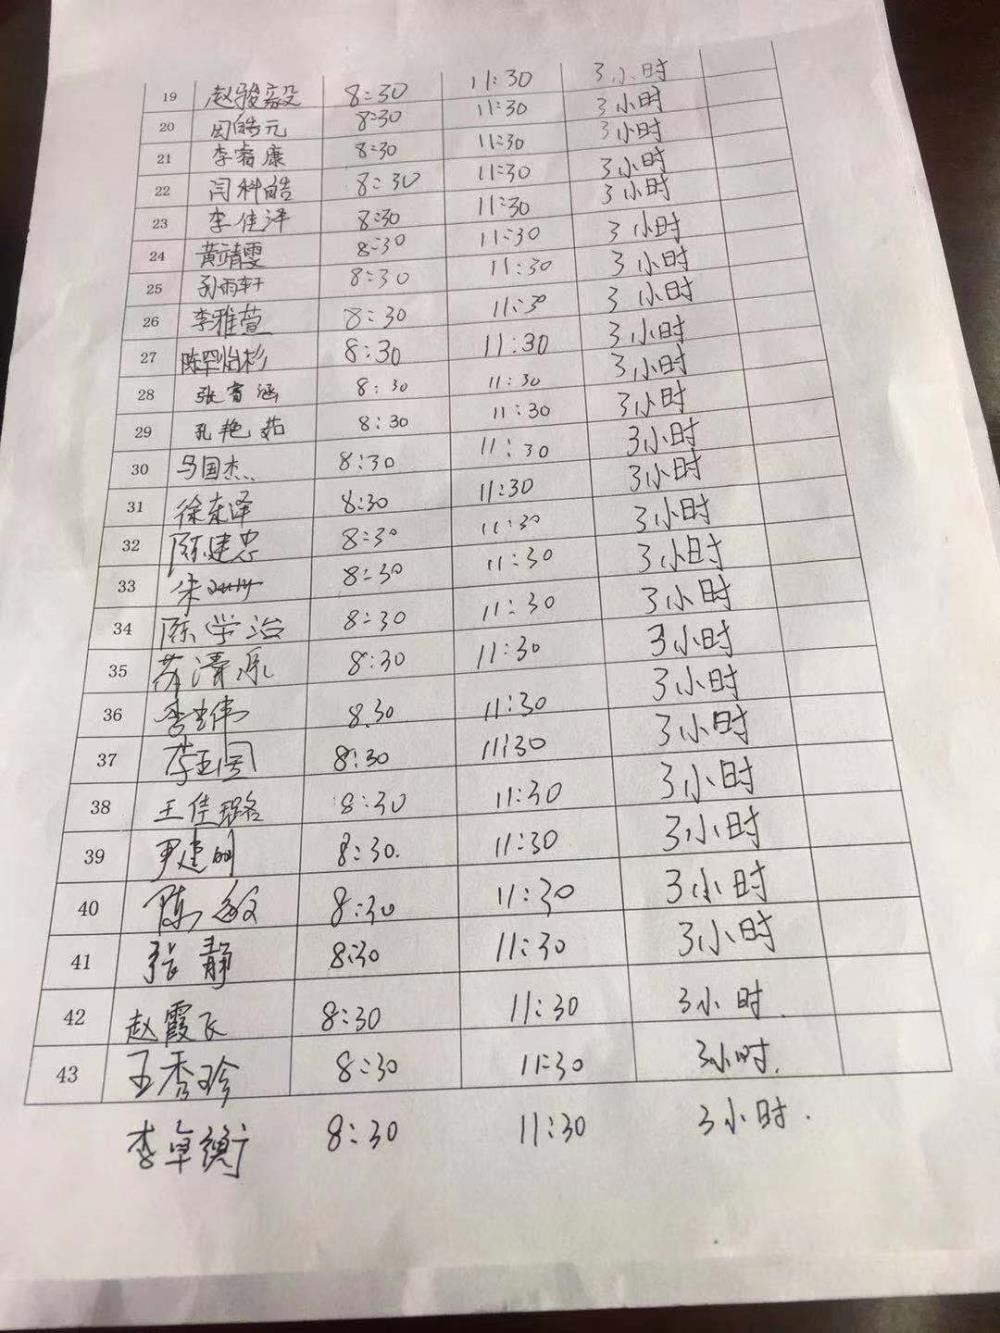 19 赵骏毅 8:30 11:30 3小时
20 闫皓元 8:30 11:30 3小时
21 李裔康 8:30 11:30 3小时
22 闫科皓 8:30 11:30 3小时
23 李佳泽 8:30 11:30 3小时
24 黄靖雯 8:30 11:30 3小时
25 孙雨轩 8:30 11:30 3小时
26 李雅萱 8:30 11:30 3小时
27 陈罕怡杉 8:30 11:30 3小时
28 张宵涵 8:30 11:30 3小时
29 孔艳茹 8:30 11:30 3小时
30 马国杰 8:30 11:30 3小时
31 徐东泽 8:30 11:30 3小时
32 陈建忠 8:30 11:30 3小时
33 朱 8:30 11:30 3小时
34 陈学治 8:30 11:30 3小时
35 8:30 11:30 3小时
36 8.30 11:30 3小时
37 李玉国 8:30 11:30 3小时
38 王佳璐 8:30 11:30 3小时
39 尹建明 8:30. 11:30 3小时
40 陈敏 8:30 11:30 3小时
41 张静 8:30 11:30 3小时
42 赵霞飞 8:30 11:30 3小时.
43 王秀珍 8:30 11:30 3小时.
李卓衡 8:30 11:30 3小时.